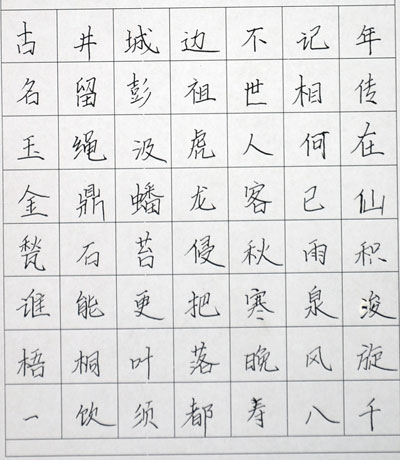 古井城边不记年
名留彭祖世相传
玉绳汲虎人何在
金鼎蟠龙客已仙
甃石苔侵秋雨积
谁能更把寒泉浚
梧桐叶落晚风旋
一饮须都寿八千